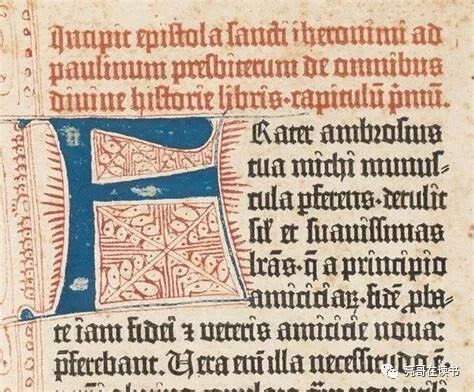 Incipit epistola sancti iheronimi ad
paulinum presbiterum de omnibus
divine historie libris·capitulū p̄mū.
FRater ambrosius
tua michi munus-
cula p̄ferens·detulit
sil̄ et suauissimas
lr̄as·q̄ a principio
amiciciaꝝ·fidē p̄ba-
te iam fidei ⁊ veteris amicicie noua:
p̄ferebant. Uera em̄ illa necessitudo ē·
亮哥在读书